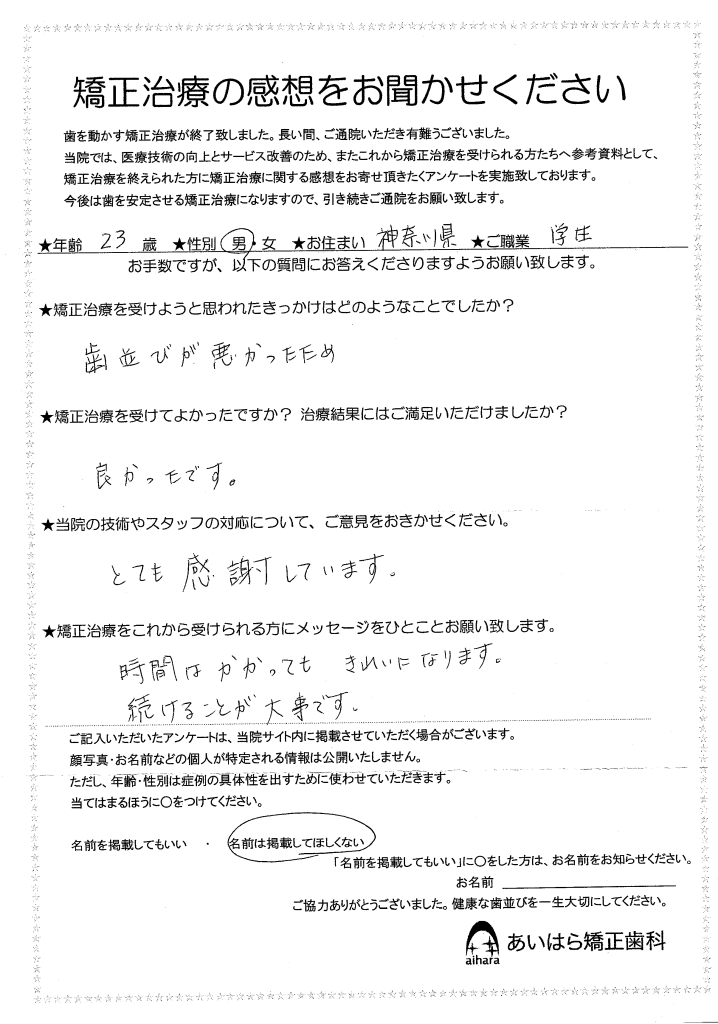 矯正治療の感想をお聞かせください
歯を動かす矯正治療が終了致しました。長い間、ご通院いただき有難うございました。
当院では、医療技術の向上とサービス改善のため、またこれから矯正治療を受けられる方たちへ参考資料として、
矯正治療を終えられた方に矯正治療に関する感想をお寄せ頂きたくアンケートを実施致しております。
今後は歯を安定させる矯正治療になりますので、引き続きご通院をお願い致します。
★年齢 23 歳 ★性別 男・女 ★お住まい 神奈川県 ★ご職業 学生
お手数ですが、以下の質問にお答えくださりますようお願い致します。
★矯正治療を受けようと思われたきっかけはどのようなことでしたか？
歯並びが悪かったため
★矯正治療を受けてよかったですか？ 治療結果にはご満足いただけましたか？
良かったです。
★当院の技術やスタッフの対応について、ご意見をおきかせください。
とても感謝しています。
★矯正治療をこれから受けられる方にメッセージをひとことお願い致します。
時間はかかっても きれいになります。
続けることが大事です。
ご記入いただいたアンケートは、当院サイト内に掲載させていただく場合がございます。
顔写真・お名前などの個人が特定される情報は公開いたしません。
ただし、年齢・性別は症例の具体性を出すために使わせていただきます。
当てはまるほうに〇をつけてください。
名前を掲載してもいい ・ 名前は掲載してほしくない
「名前を掲載してもいい」に〇をした方は、お名前をお知らせください。
お名前
ご協力ありがとうございました。健康な歯並びを一生大切にしてください。
aihara あいはら矯正歯科